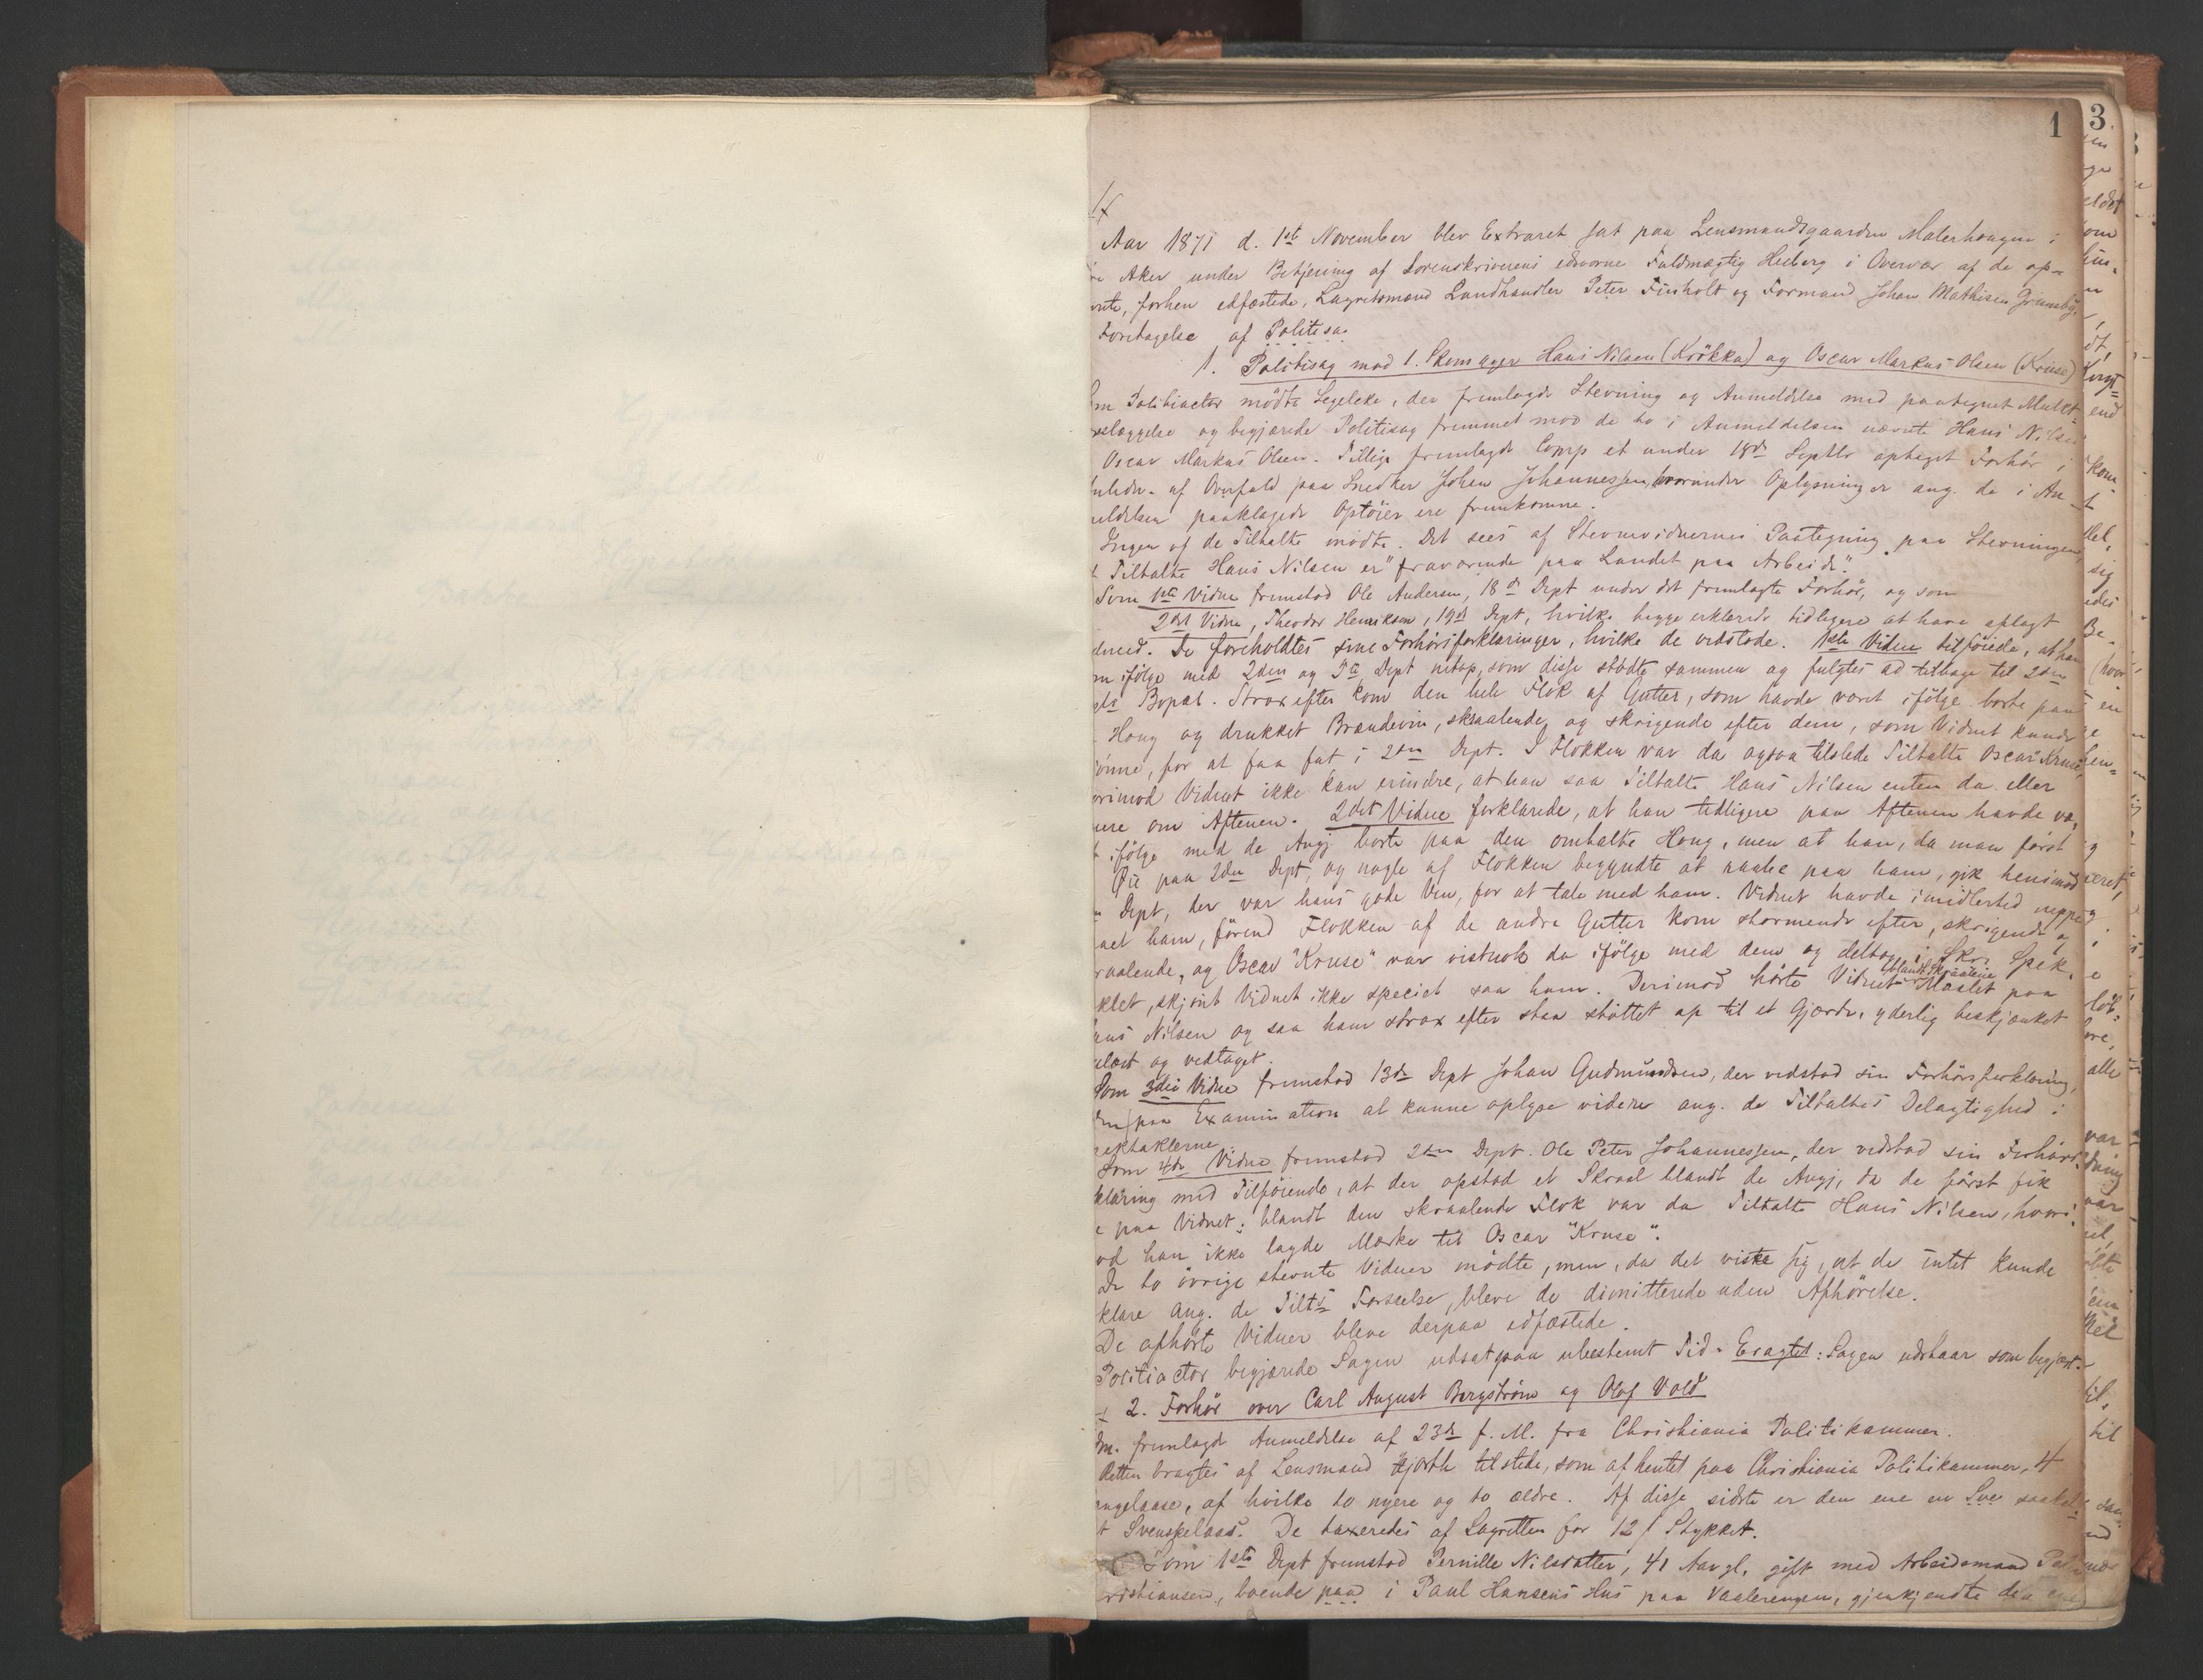 1
3
Aar 1871 d. 1ste November blev Extraret sat paa Lensmandsgaarden Malerhaugen i
Aker under Betjening af Sorenskriverens edsvorne Fuldmægtig Heiberg i Overvær af de op=
forhen edfæstede, Lagrettesmænd Landhandler Peter Finholt og Formand Johan Mathisen Grimsby,
Foretagelse af Politisa.
1. Politisag mod 1. Skomager Hans Nilsen (Krökka) og Oscar Markus Olsen (Kruse)
Politiactor mödte Segelcke, der fremlagde Stevning og Anmeldelse med paategnet Mulkt
og begjærede Politisag fremmet mod de to i Anmeldelsen nævnte Hans Nilsen
Oscar Markus Olsen. Tillige fremlagde Comp et under 18de Septbr optaget Forhör i
af Overfald paa Snedker Johan Johannessen, hvorunder Oplysninger ang. de i An=
meldelsen paaklagede Optöier ere fremkomne.
Ingen af de Tiltalte mödte. Det sees af Stevnevidnernes Paategning paa Stevningen,
Tiltalte Hans Nilsen er "fraværende paa Landet paa Arbeide".
Som 1ste Vidne fremstod Ole Andersen, 18de Dept under det fremlagte Forhör, og som
2det Vidne, Theodor Henriksen, 19de Dept, hvilke begge erklærede tidligere at have aflagt
De foreholdtes sine Forhörsforklaringer, hvilke de vedstode. 1ste Vidne tilföiede, at han
ifölge med 2den og Dept netop, som disse stödte sammen og fulgtes ad tilbage til 2den
Bopæl. Strax efter kom den hele Flok af Gutter, som havde været ifölge borte paa
Haug og drukket Brændeviin, skraalende og skrigende efter dem, som Vidnet kunde
for at faa fat i 2den Dept. I Flokken var da ogsaa tilstede Tiltalte Oscar "Kruse",
Vidnet ikke kan erindre, at han saa Tiltalte Hans Nilsen enten da eller
om Aftenen. 2det Vidne forklarede, at han tidligere paa Aftenen havde væ,
ifölge med de Angj borte paa den omtalte Haug, men at han, da man först
Öie paa 2den Dept, og nogle af Flokken begyndte at raabe paa ham, gik henimod
Dept, der var hans gode Ven, for at tale med ham. Vidnet havde imidlertid neppe
ham, förend Flokken af de andre Gutter kom stormende efter, skrigende og
og Oscar "Kruse" var vistnok da ifölge med dem og deltog i Spek,
skjönt Vidnet ikke speciet saa ham. Derimod hörte Vidnet blandt Skraalene Mælet paa
Nilsen og saa ham strax efter staa stöttet op til et Gjærde, yderlig beskjænket
og vedtaget.
Som 3die Vidne fremstod 13de Dept Johan Gudmundsen, der vedstod sin Forhörsforklaring,
paa Examination at kunne oplyse videre ang. de Tiltaltes Delagtighed i
Som 4de Vidne fremstod 2den Dept. Ole Peter Johannessen, der vedstod sin Forhörs
klaring med Tilföiende, at der opstod et Skraal blandt de Angj, da de först fik
paa Vidnet; blandt den skraalende Flok var da Tiltalte Hans Nilsen, hvori,
han ikke lagde Mærke til Oscar "Kruse".
De to övrige stevnte Vidner mödte, men, da det viste sig, at de intet kunde
klare ang. de Tilts Forseelse, bleve de dimitterede uden Afhörelse.
De afhörte Vidner bleve derpaa edfæstede.
Politiactor begjærede Sagen udsat paa ubestemt Tid. Eragtet: Sagen udstaar som begjært.
2. Forhör over Carl August Bergström og Olaf Vold
fremlagde Anmeldelse af 23de f. M. fra Christiania Politikammer.
Retten bragtes af Lensmand Hjorth tilstede, som afhentet paa Christiania Politikammer, 4
af hvilke to nyere og to ældre. Af disse sidste er den ene en saakal
Svenskelaas. De taxeredes af Lagretten for 12 ſ Stykket.
Som 1ste Dept fremstod Pernille Nilsdatter, 41 Aar gl, gift med Arbeidsmand
boende paa i Paul Hansens Hus paa Vaalerengen, gjenkjendte den ene